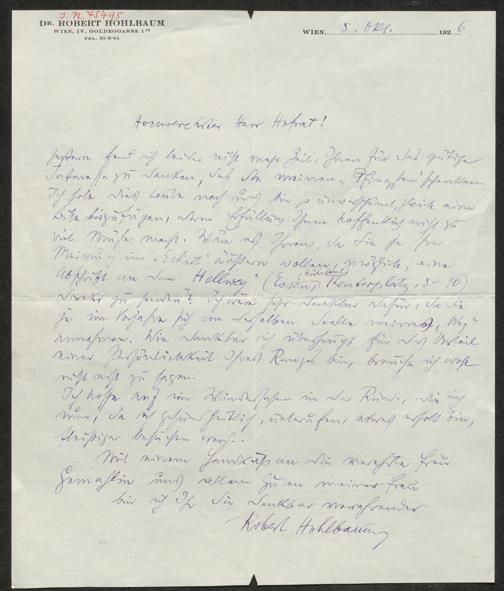 I.N. 75495
DR. ROBERT HOHLBAUM
WIEN, IV. GOLDEGGASSE 1
TEL. 51-9-61
WIEN, 8. Okt. 1926
Hochverehrter Herr Hofrat!
Gestern fand ich leider nicht mehr Zeit, Ihnen für das gütige
Interesse zu danken, das Sie meinem „ schenken.
Ich hole dies heute nach und bin so unverschämt, gleich eine
Bitte beizufügen, deren Erfüllung Ihnen hoffentlich nicht zu
viel Mühe macht. Wäre es Ihnen, da Sie ja Ihre
Meinung im äußern wollen, möglich, eine
Abschrift an den „Hellweg" (Essen, Theaterplatz, 8-10)
direkt zu senden? Ich wäre sehr dankbar dafür, da Sie
ja im Vorjahre sich an derselben Stelle meines
annahmen. Wie dankbar ich überhaupt für das Urteil
einer Persönlichkeit Ihres Ranges bin, brauche ich wohl
nicht erst zu sagen.
Ich hoffe auf ein Wiedersehen in der Runde, die ich
nun, da ich gesundheitlich, unberufen, etwas erholt bin,
fleißiger besuchen werde.
Mit einem Handkuß an die verehrte Frau
Gemahlin und allem Guten meiner Frau
bin ich Ihr Sie dankbar verehrender
Robert Hohlbaum